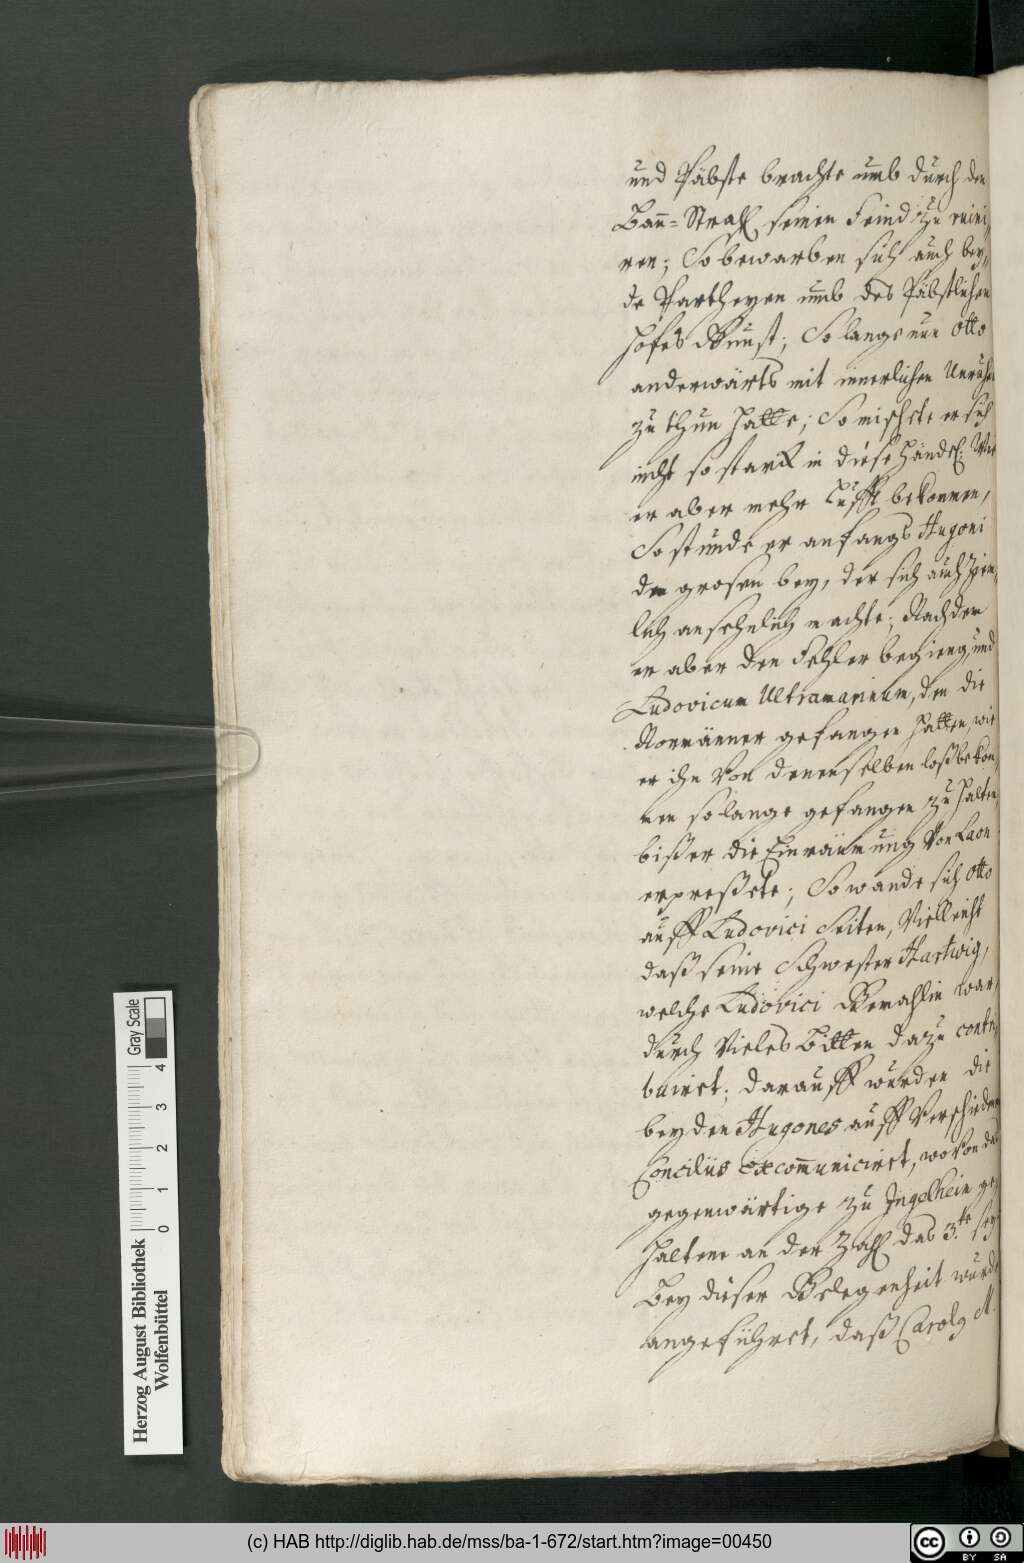 und Päbste brachte umb durch den
Bañ=Strahl seinen Feind zu ruini,
ren; So bewarben sich auch bey,
de Partheyen umb des Päbstlichen
Hofes Gunst; So lange nun Otto
anderwärts mit innerlichen Unruhen
zu thun hatte; So mischete er sich
nicht so starck in diese Händel: Wie
er aber mehr Lufft bekommen,
So stunde er anfangs Hugoni
dem grosen bey, der sich auch ziem,
lich ansehnlich machte; Nachdem
er aber den Fehler begieng, und
Ludovicum Ultramarinum, den die
Normänner gefangen hatten, wie
er ihn von denenselben loß bekom,
men so lange gefangen zu halten,
biß er die Einräumung von Laon
erpreßete; So wande sich Otto
auff Ludovici Seiten, Vielleicht
daß seine Schwester Hartwig,
welche Ludovici Gemahlin war,
durch Vieles Bitten dazu contri,
buiret; darauff wurden die
beyden Hugones auff verschiedenen
Conciliis excom̃uniciret, wovon das
gegenwärtige zu Ingelheim ge,
haltene an der Zahl das 3.te sey
Bey dieser Gelegenheit wurde
angeführet, daß Carolg M.
Herzog August Bibliothek
Wolfenbüttel
0 1 2 3 4
Gray Scale
(c) HAB http://diglib.hab.de/mss/ba-1-672/start.htm?image=00450
cc BY SA